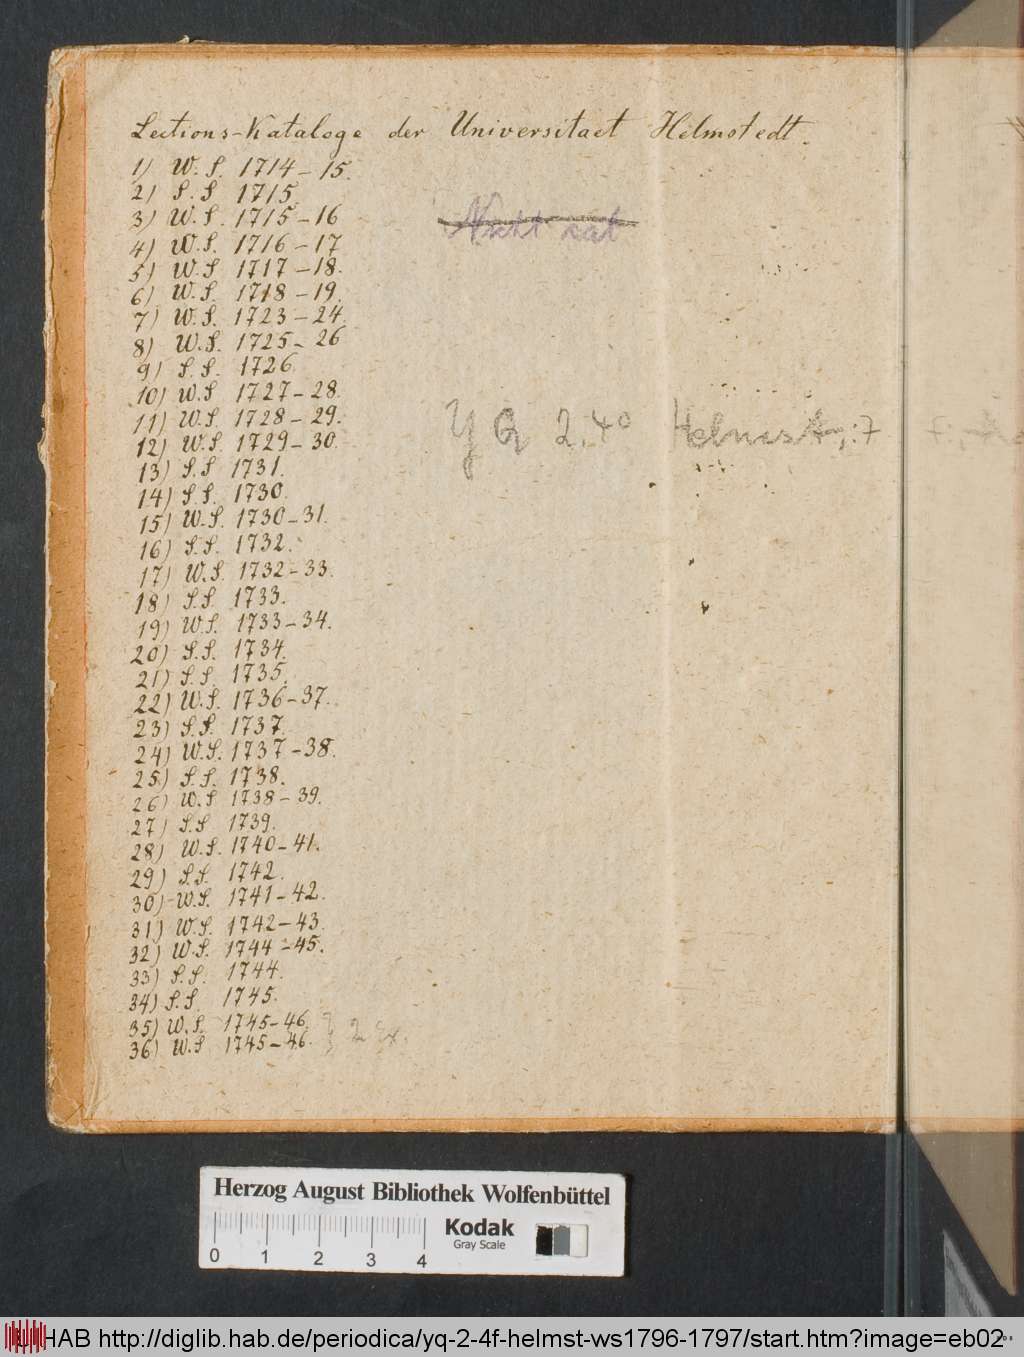 Lections-Kataloge der Universitaet Helmstedt.
1) W. S. 1714-15.
2) S. S 1715.
3) W. S. 1715-16
Nicht kat
4) W. S. 1716-17
5) W. S 1717-18.
6) W. S. 1718-19.
7) W. S. 1723-24.
8) W. S. 1725-26
9) S. S. 1726.
10) W. S 1727-28.
11) W. S. 1728-29.
YQ 2. 4° Helmst.,:7
12) W. S. 1729-30.
13) S. S 1731.
14) S. S. 1730.
15) W. S. 1730-31.
16) S. S. 1732.
17) W. S. 1732-33.
18) S. S. 1733.
19) W. S. 1733-34.
20) S. S. 1734.
21) S. S. 1735.
22) W. S. 1736-37.
23) S. S. 1737.
24) W. S. 1737-38.
25) S. S. 1738.
26) W. S 1738-39.
27) S. S 1739.
28) W. S. 1740-41.
29) S. S. 1742.
30) W. S. 1741-42.
31) W. S. 1742-43.
32) W. S. 1744-45.
33) S. S. 1744.
34) S. S. 1745.
35) W. S. 1745-46.
36) W. S 1745-46. } 2 Ex.
Herzog August Bibliothek Wolfenbüttel
Kodak
Gray Scale
0 1 2 3 4
HAB http://diglib.hab.de/periodica/yq-2-4f-helmst-ws1796-1797/start.htm?image=eb02